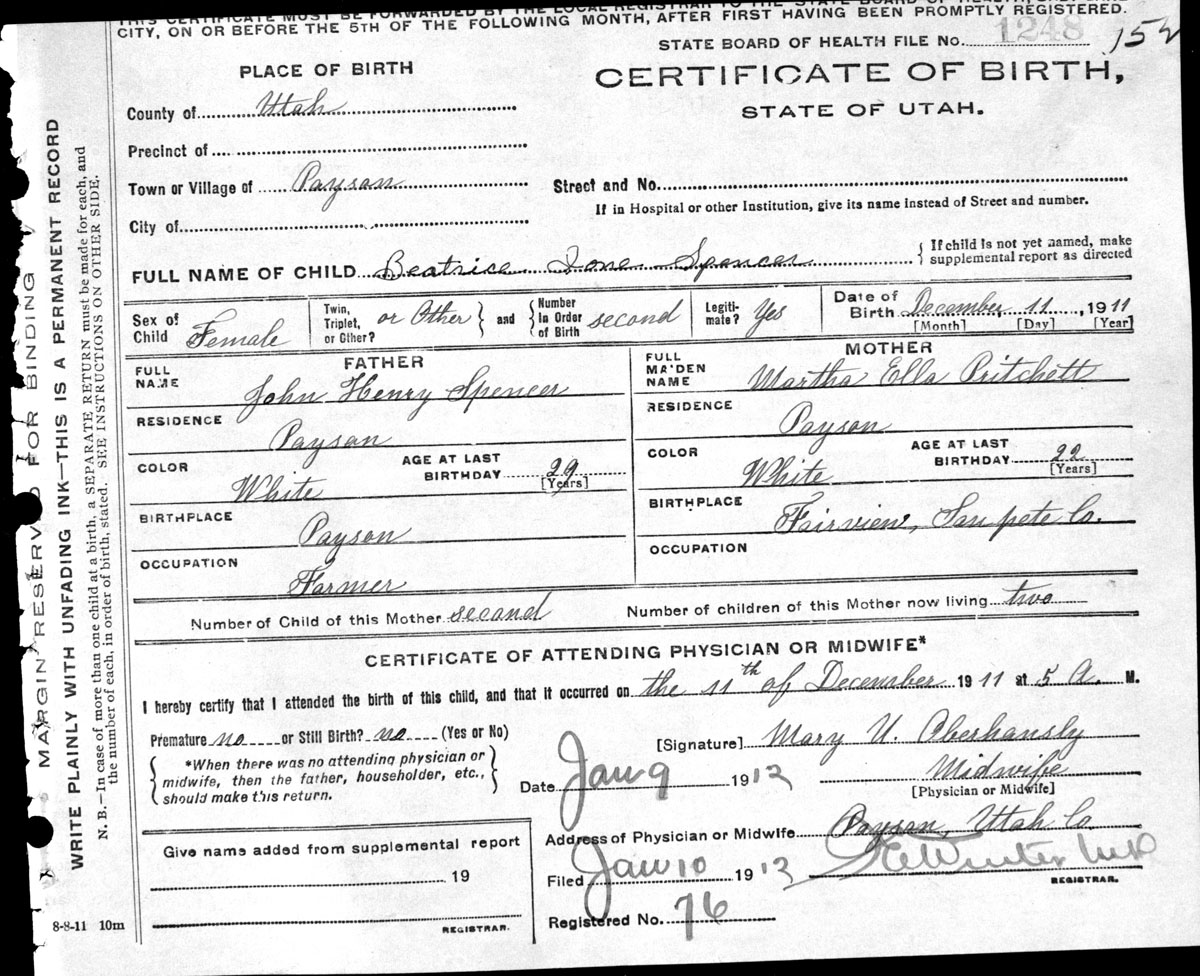 THIS CERTIFICATE MUST BE FORWARDED BY THE LOCAL REGISTRAR TO THE STATE BOARD OF HEALTH, SALT LAKE
CITY, ON OR BEFORE THE 5TH OF THE FOLLOWING MONTH, AFTER FIRST HAVING BEEN PROMPTLY REGISTERED.
STATE BOARD OF HEALTH FILE No. 1248 152
PLACE OF BIRTH
CERTIFICATE OF BIRTH,
STATE OF UTAH.
County of Utah
Precinct of
Town or Village of Payson
Street and No.
If in Hospital or other Institution, give its name instead of Street and number.
City of
FULL NAME OF CHILD Beatrice Ione Spencer { If child is not yet named, make
supplemental report as directed
Sex of Child Female
Twin, Triplet, or Other? or Other } and { Number In Order of Birth second
Legitimate? Yes
Date of Birth December 11, 1911
[Month] [Day] [Year]
FATHER
FULL NAME John Henry Spencer
RESIDENCE Payson
COLOR White
AGE AT LAST BIRTHDAY 29 [Years]
BIRTHPLACE Payson
OCCUPATION Farmer
MOTHER
FULL MAIDEN NAME Martha Ella Pritchett
RESIDENCE Payson
COLOR White
AGE AT LAST BIRTHDAY 22 [Years]
BIRTHPLACE Fairview, Sanpete Co.
OCCUPATION
Number of Child of this Mother second Number of children of this Mother now living two
CERTIFICATE OF ATTENDING PHYSICIAN OR MIDWIFE*
I hereby certify that I attended the birth of this child, and that it occurred on the 11th of December 1911 at 5 A. M.
Premature no or Still Birth? no (Yes or No)
{ *When there was no attending physician or
midwife, then the father, householder, etc.,
should make this return. }
[Signature] Mary U. Oberhansly
Date Jan 9 1912
Midwife
[Physician or Midwife]
Address of Physician or Midwife Payson, Utah Co
Give name added from supplemental report
19
REGISTRAR.
Filed Jan 10 1912
Winter MD
REGISTRAR.
Registered No. 76
8-8-11 10m
MARGIN RESERVED FOR BINDING
WRITE PLAINLY WITH UNFADING INK—THIS IS A PERMANENT RECORD
N. B.—In case of more than one child at a birth, a SEPARATE RETURN must be made for each, and
the number of each, in order of birth, stated. SEE INSTRUCTIONS ON OTHER SIDE.